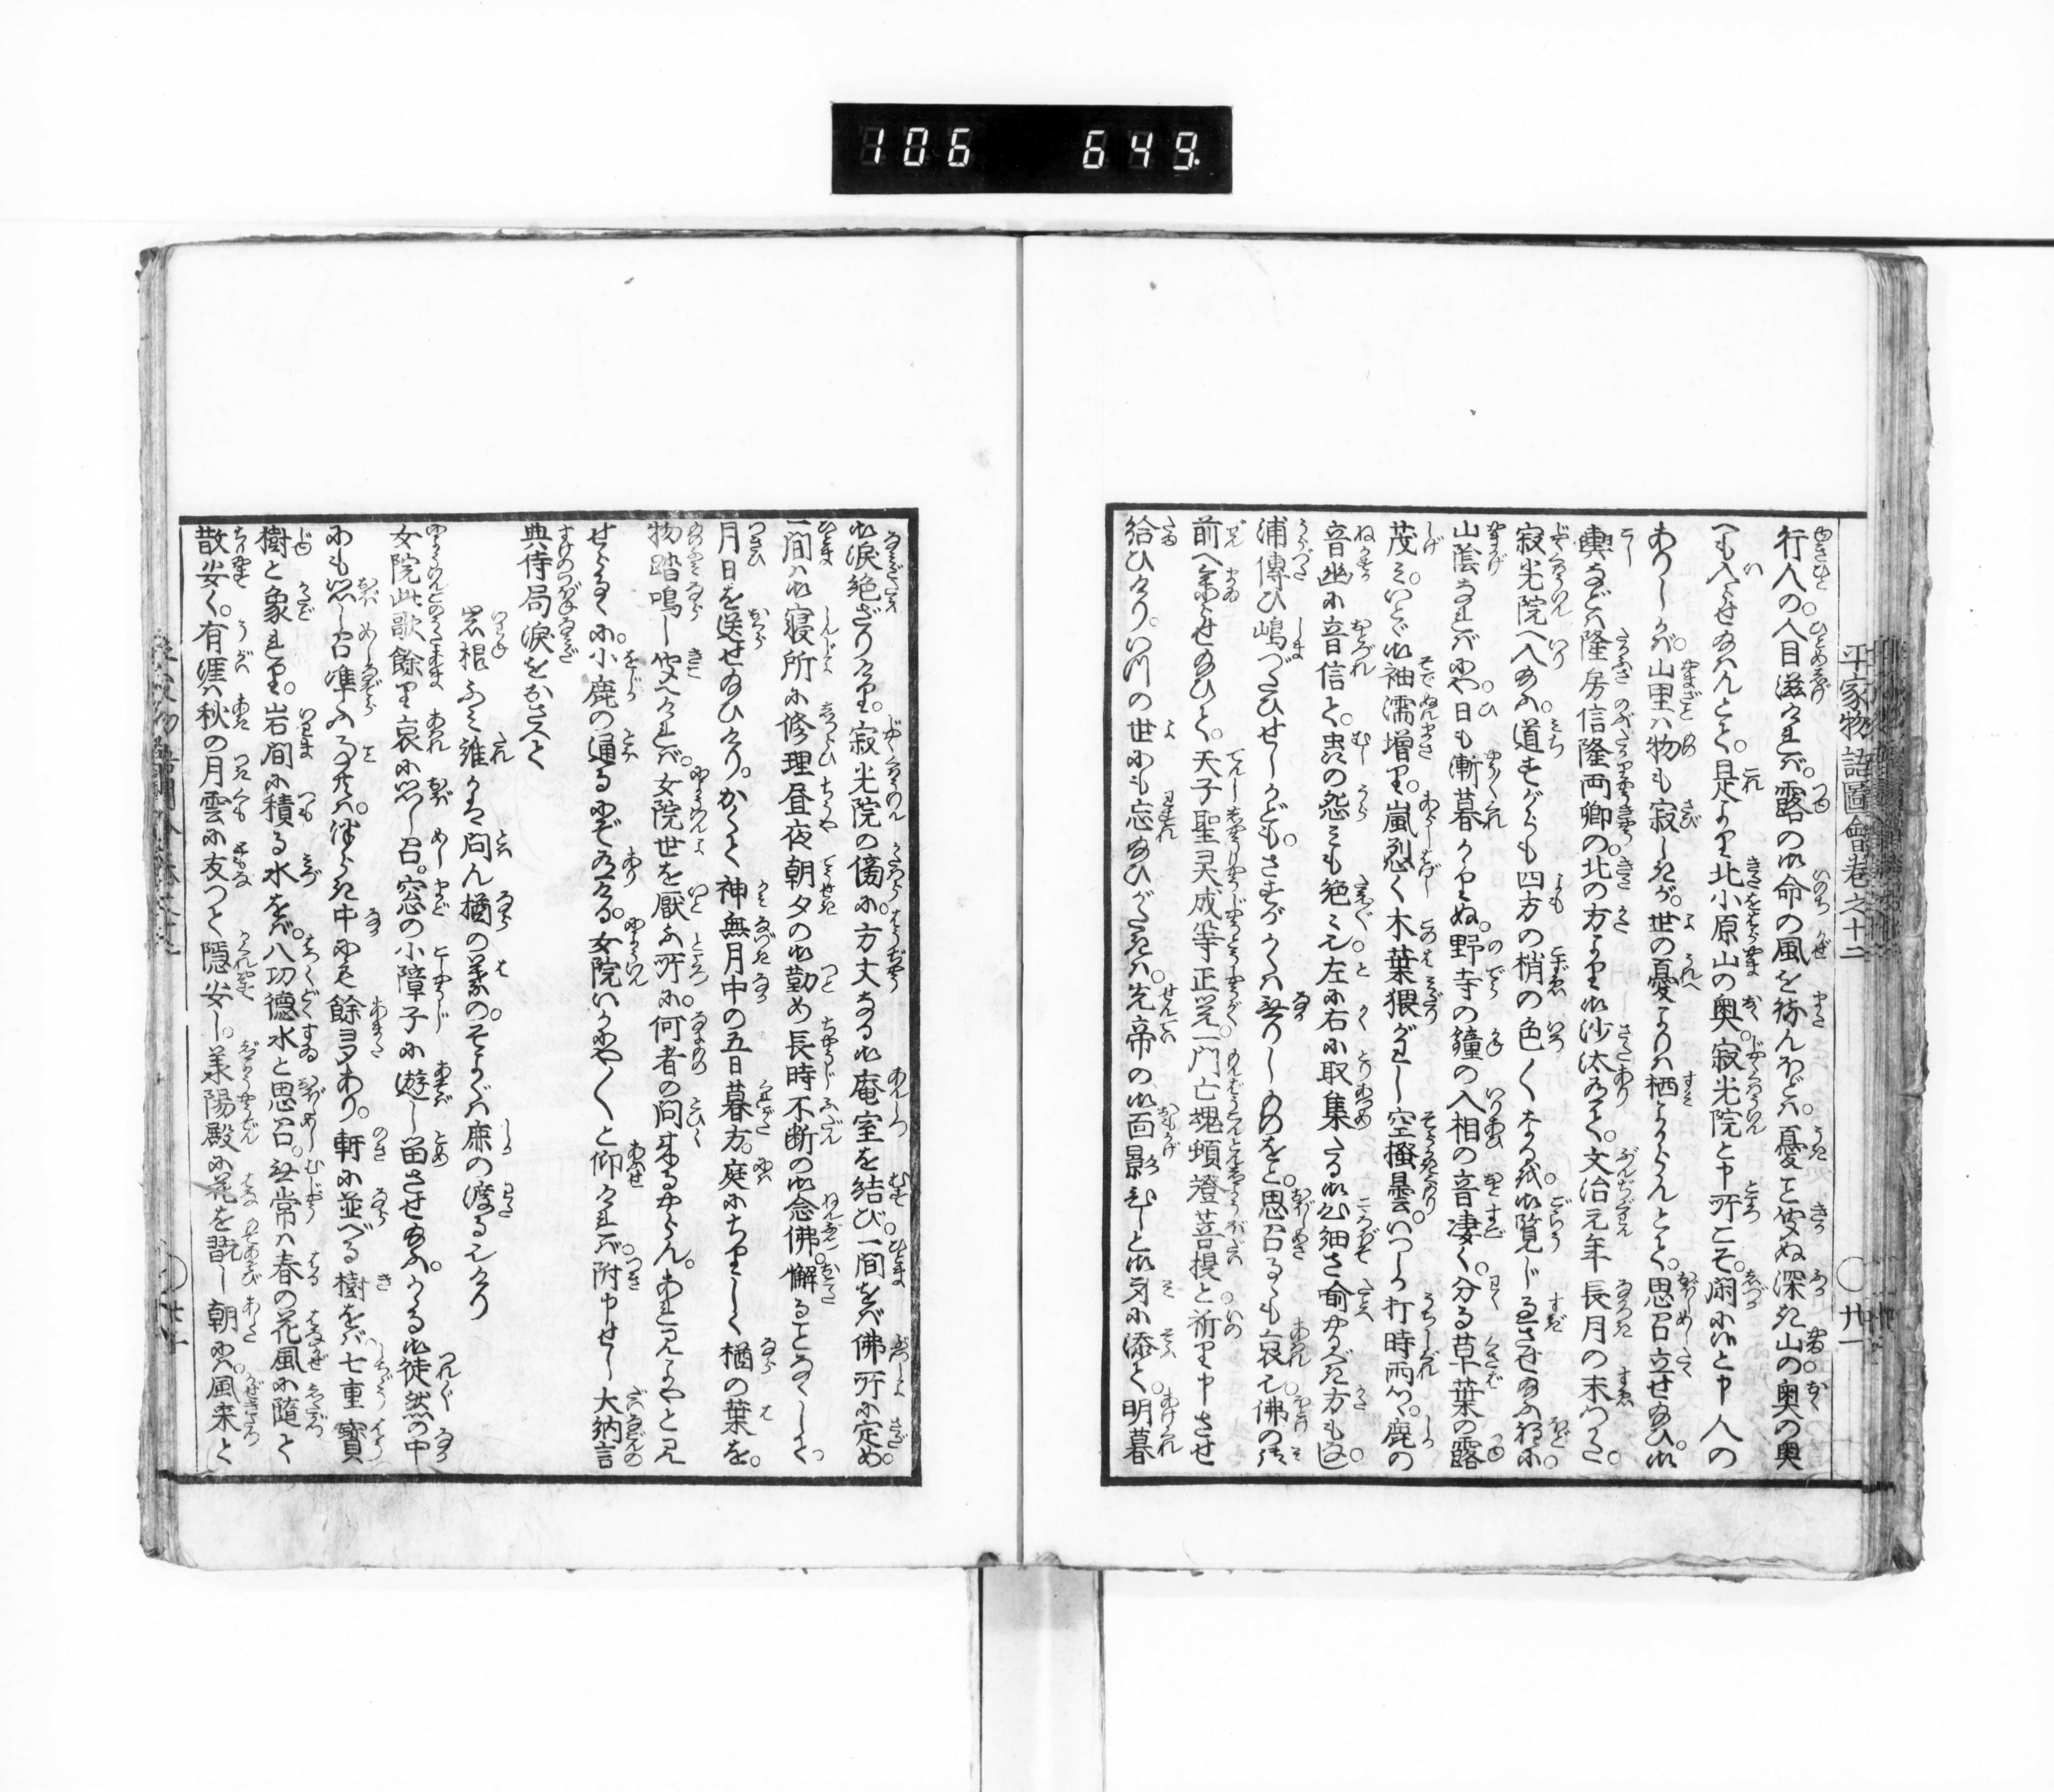 106 649
平家物語圖會巻之十二
廿一
行人の人目滋ければ。露の御命の風を待んほどは。憂こと聞ぬ深き山の奥の奥
へも入らせ給はんとて。是より北小原山の奥。寂光院と申所こそ。閑に候と申人の
ありしかば。山里は物も寂しきが。世の憂よりは栖よからんとて。思召立せ給ひ。御
輿などは隆房信隆両卿の。北の方より御沙汰有て。文治元年長月の末つかた。
寂光院へ入給ふ。道すがらも四方の梢の色〱なるを。御覧じ過させ給ふ程に。
山蔭なればにや。日も漸暮かゝりぬ。野寺の鐘の入相の音凄く。分る草葉の露
茂み。いとゞ御袖濡増り。嵐烈く木葉猥がはし空掻曇。いつしか打時雨つゝ。鹿の
音幽に音信て。虫の怨みも絶〲に。左に右に取集たる御心細さ喩やるべき方も
浦傳ひ嶋づたひせしかども。さすがかくは無りしものをと。思召るゝも哀也。佛の
前へ参らせ給ひて。天子聖灵成等正覚。一門亡魂頓證菩提と。祈り申させ
給ひけり。いつの世にも忘給ひがたきは。先帝の御面影ひしと御身に添て。明暮
御涙絶ざりけり。寂光院の傍に。方丈なる御庵室を結び。一間をば佛所に定め。
一間は御寝所に修理昼夜朝夕の御勤め長時不断の御念佛。懈ることなくして。
月日を送せ給ひけり。かくて神無月中の五日暮方。庭にちりしく楢の葉を。
物踏鳴し聞へければ。女院世を厭ふ所に。何者の問来るやらん。あれ見よやと見
せらるゝに。小鹿の通るにぞ有ける。女院いかにや〱と仰ければ。附申せし大納言
典侍局涙をおさへて
岩根ふみ誰かは問ん楢の葉の。そよぐは鹿の渡る也けり
女院此歌餘り哀に思し召。窓の小障子に遊し留させ給ふ。かゝる御徒然の中
にも思し召準ふる事は。つらき中にも餘多あり。軒に並べる樹をば。七重寳
樹と象れり。岩間に積る水をば。八功德水と思召。無常は春の花風に随て
散安く。有涯は秋の月雲に友つて隠安し。
殿に花を翫し朝には。風来て